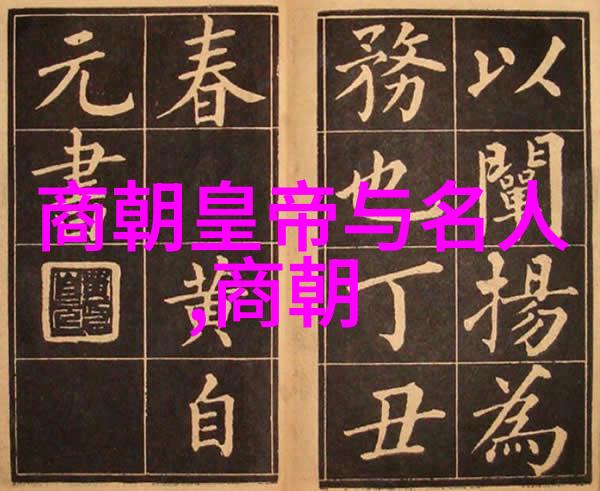 商朝皇帝与名人
,商朝
以闡揚為
務也丁丑
春黄自
元書